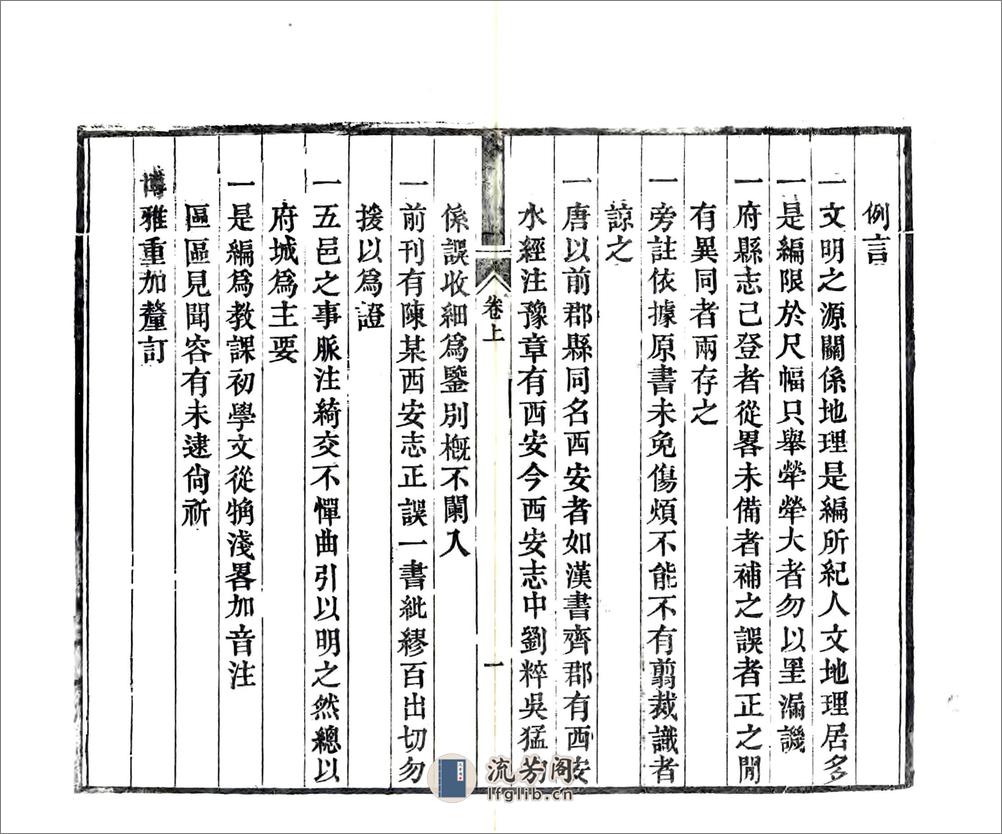 例言
一文明之源關係地理是編所紀人文地理居多
一是編限於尺幅只舉犖犖大者勿以罣漏譏
一府縣志己登者從畧未備者補之誤者正之閒
有異同者兩存之
一旁註依據原書未免傷煩不能不有翦裁識者
諒之
一唐以前郡縣同名西安者如漢書齊郡有西安
水經注豫章有西安今西安志中劉粹吳猛
卷上
一
係誤收細爲鑒別槪不闌入
一前刊有陳某西安志正誤一書紕繆百出切勿
援以爲證
一五邑之事脈注綺交不憚曲引以明之然總以
府城爲主要
一是編爲教課初學文從觕淺畧加音注
區區見聞容有未逮尙祈
博雅重加釐訂
流芳阁
lfglib.cn